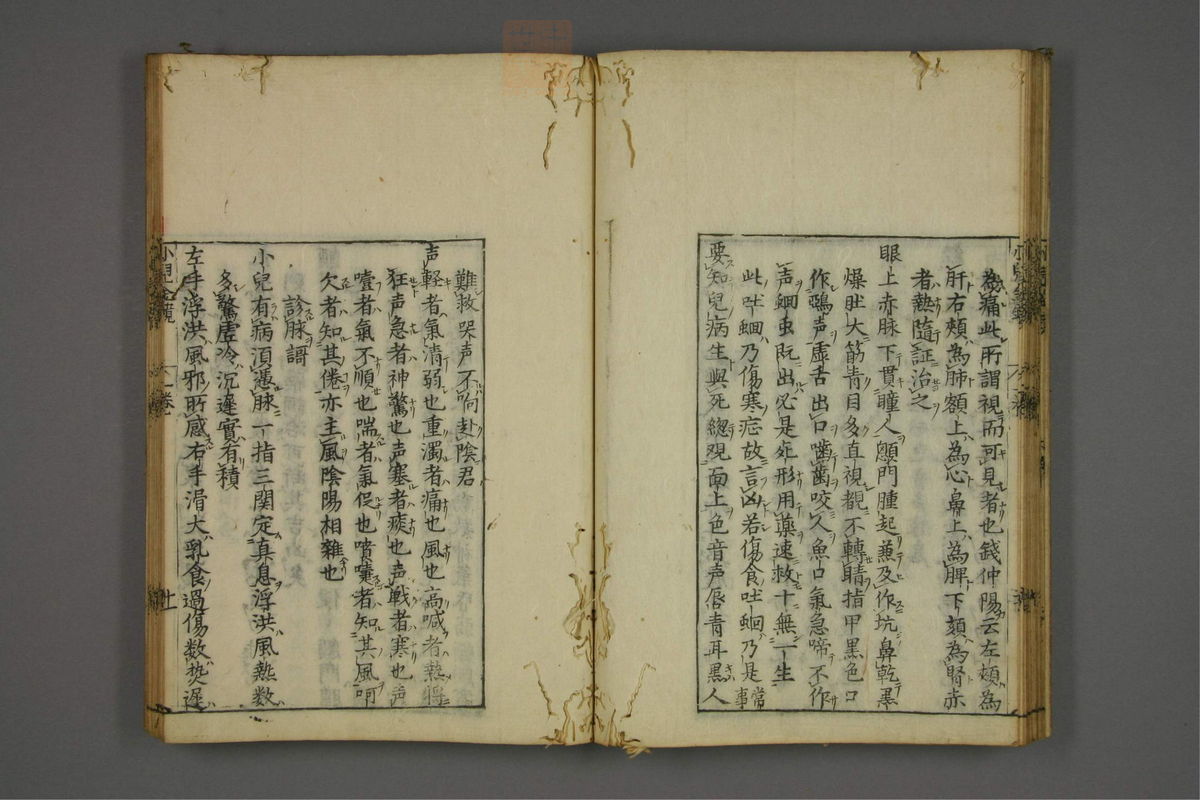 為痛此所謂視而可見者也錢仲陽云左頰為
肝右頰為肺額上為心鼻上為脾下頦為腎赤
者熱隨証治之
眼上赤脉下貫瞳人顖門腫起兼及作坑鼻乾黒
燥肚大筋青目多直視覩不轉睛指甲黒色口
作鵶声虚舌出口嚙歯咬人魚口氣急啼不作
声蛔虫既出必是死形用藥速救十無一生
此吐蛔乃傷寒症故言凶若傷食吐蛔乃是常事
要知兒病生與死縂観面上色音声唇青耳黒人
難救哭声不响赴陰君
声軽者氣清弱也重濁者痛也風也高喊者熱將
狂声急者神驚也声塞者痰也声戦者寒也声
噎者氣不順也喘者氣促也噴嚏者知其風呵
欠者知其倦亦主風陰陽相雜也
診脉謌
小兒有病須憑脉一指三関定真息浮洪風熱数
多驚虚冷沉遲實有積
左手浮洪風邪所感右手滑大乳食過傷数热遅
小兒
一卷
廿